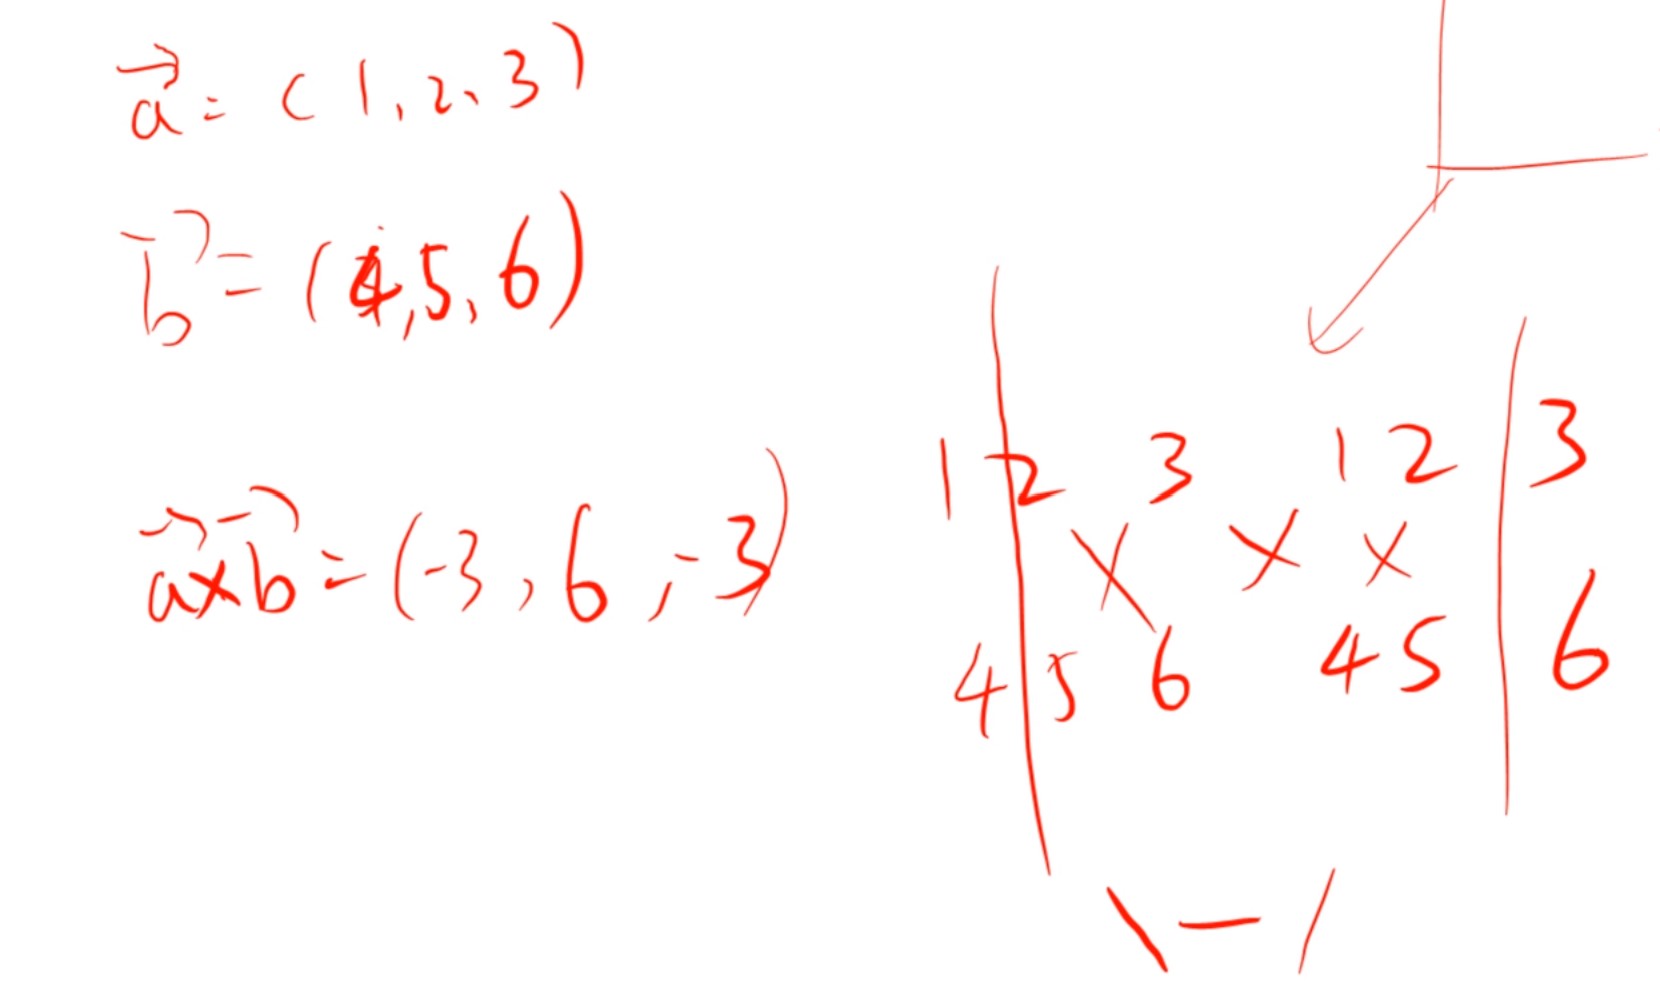 a⃗ = (1, 2, 3)
b⃗ = (4, 5, 6)
a⃗×b⃗ = (-3, 6, -3)
1 | 2 3 1 2 | 3
× × ×
4 | 5 6 4 5 | 6
\ − /